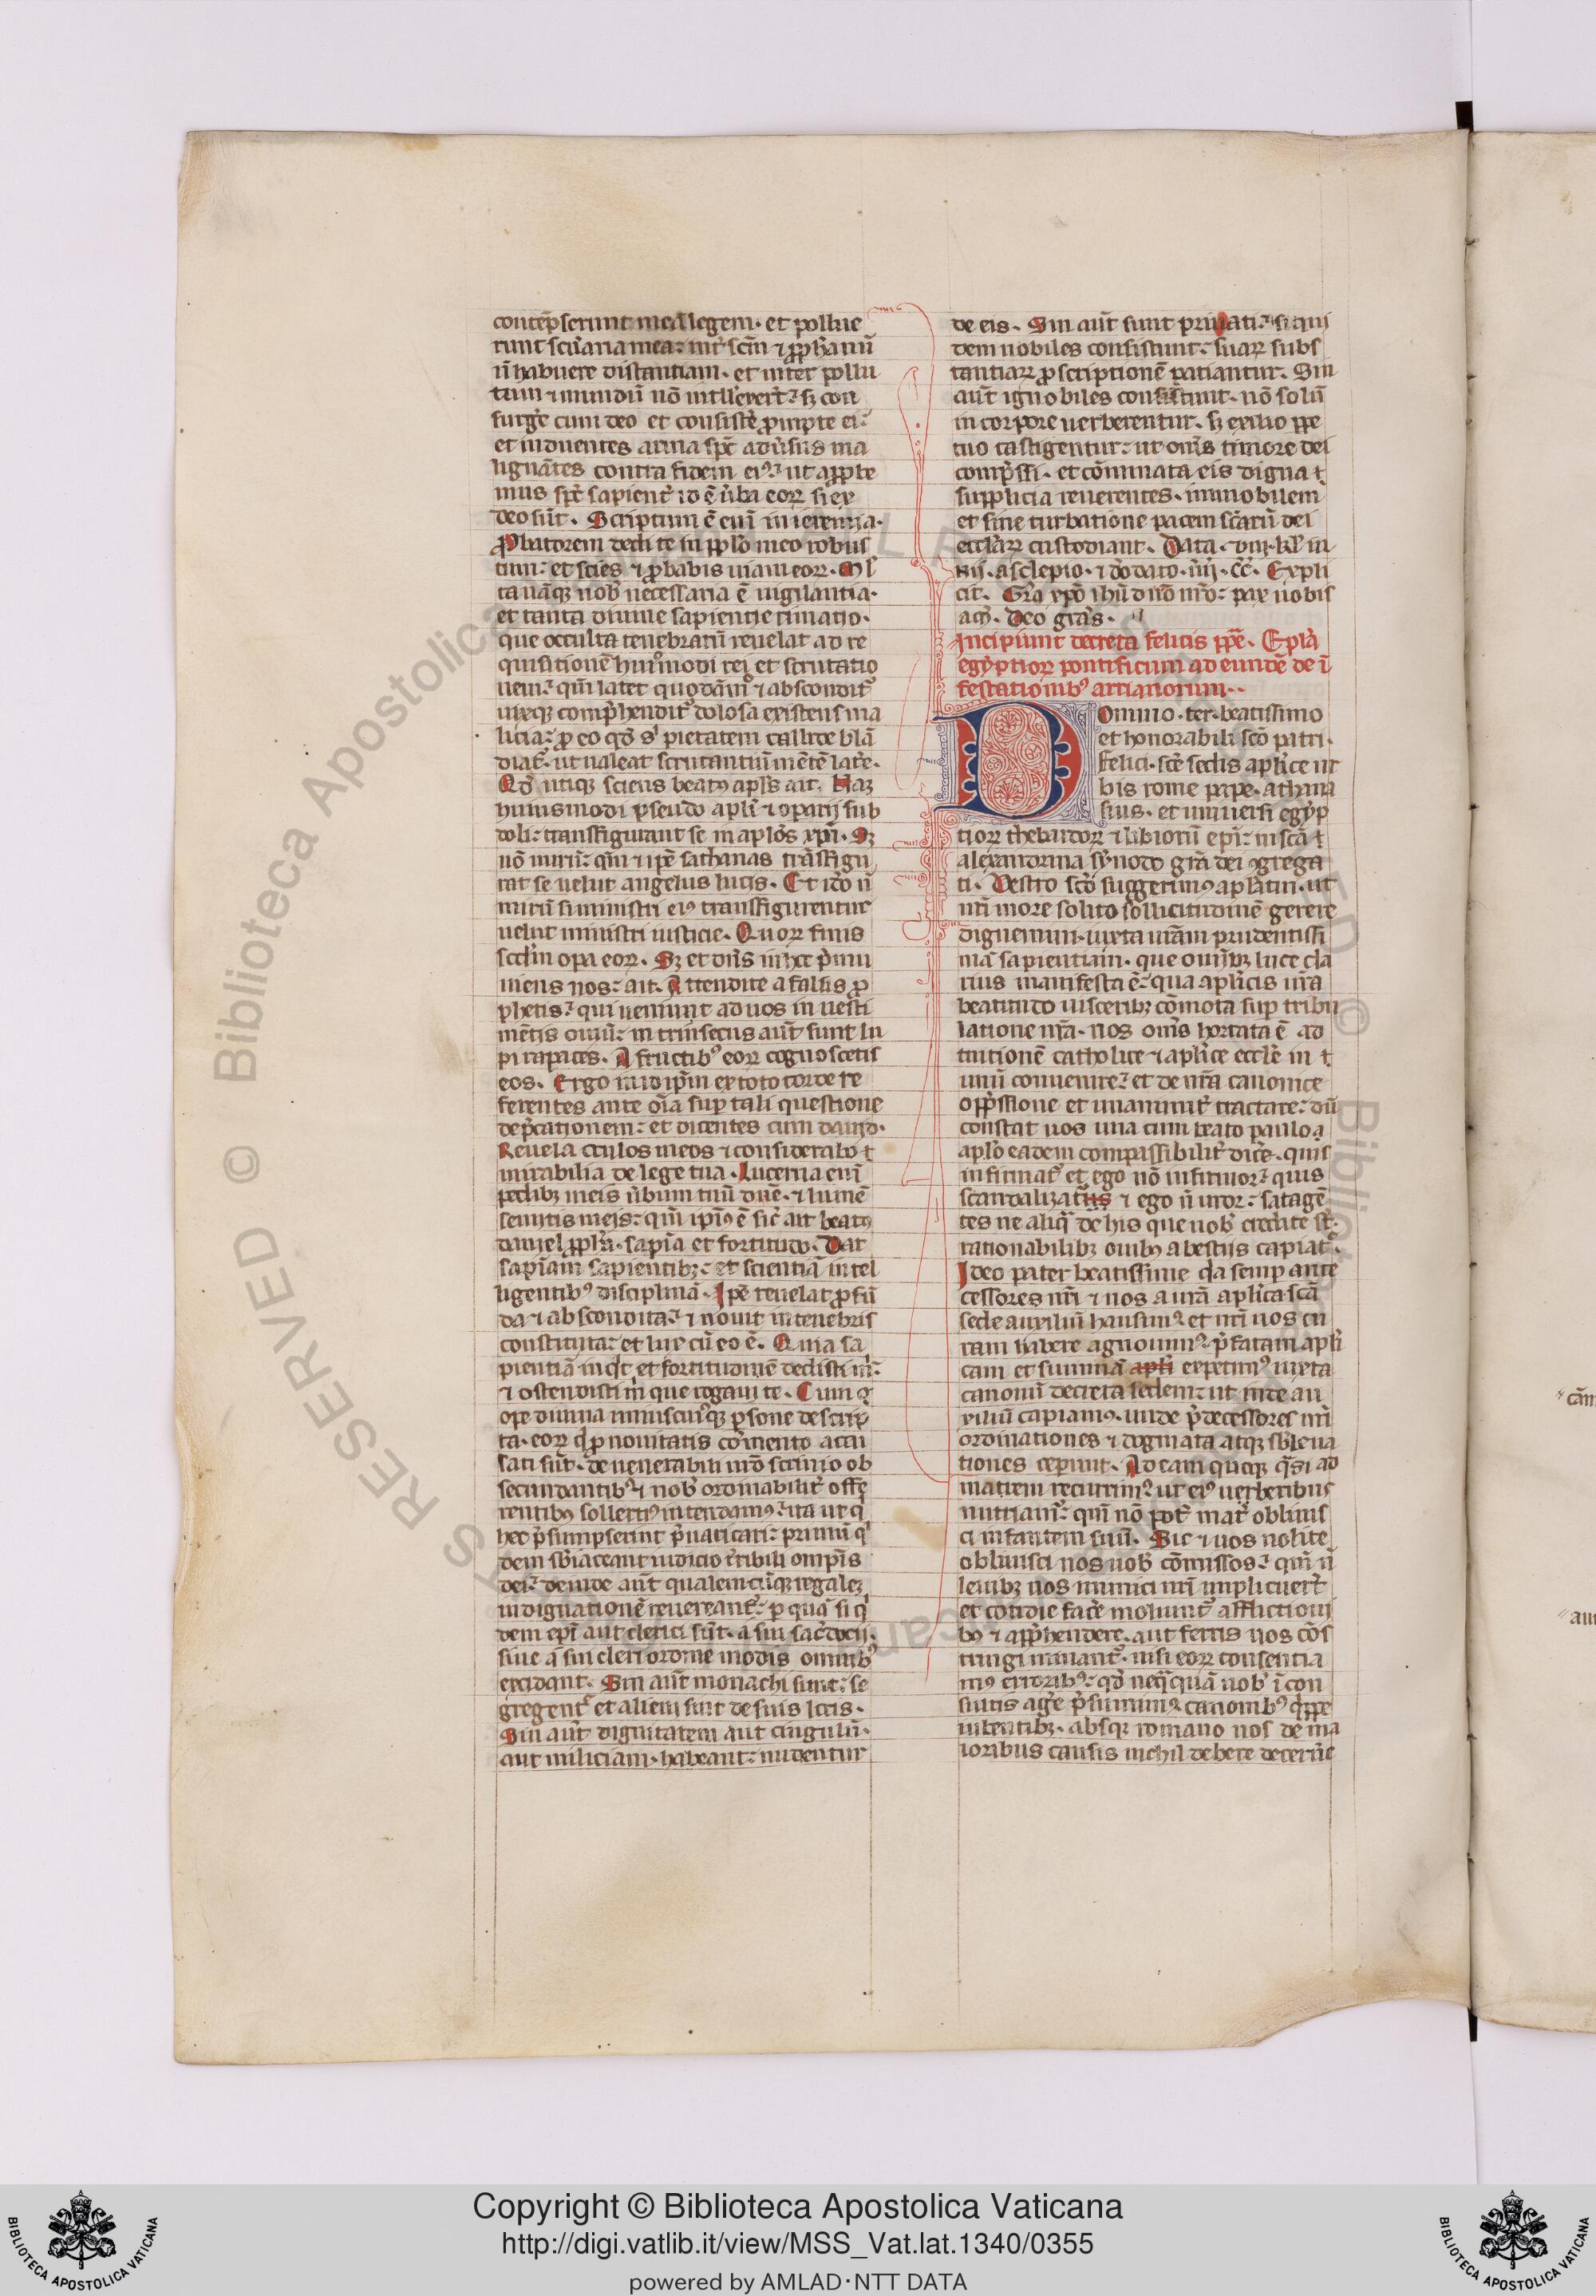 contēpserunt meā legem · et pollue
runt scuaria mea: int scm ⁊ pphanū
ū habuere distantiam · et inter pollu
tum ⁊ mundū nō intllexert: sꝫ con
surge cum deo et consiste prompte ei:
et induentes arma spc aduersus ma
lignātes contra fidem eiꝰ: ut appte
mus spc sapient id ē uba eoꝝ si ex
deo sūt · Scriptum ē eni in ieremia ·
Probatorem dedi te in pplo meo robus
tum: et scies ⁊ probabis uiam eoꝝ ·
ta nāqꝫ nob necessaria ē uigilantia ·
et tanta diuine sapientie rimatio ·
que occulta tenebrarū reuelat ad re
quisitionē huꝰmodi rei et scrutatio
nem: qm latet quodāmo ⁊ abscondit
uixqꝫ comphendit dolosa existens ma
licia: pro eo qd pietatem callide blā
diat · ut ualeat scrutantiū mētē late ·
Qd utiqꝫ sciens beatꝰ apls ait · Nā
huiusmodi pseudo apli ⁊ oparij sub
doli: transfigurant se in aplos xpi · Sꝫ
nō mirū: qm ⁊ ipe sathanas trāsfigu
rat se uelut angelus lucis · Et ido ū
mirū si ministri eiꝰ transfigurentur
uelut ministri iusticie · Quoꝝ finis
scdm opa eoꝝ · Sꝫ et dns iuxte pmu
niens nos: ait · Attendite a falsis pro
phetis: qui ueniunt ad uos in uesti
mētis ouiū: intrinsecus aut sunt lu
pi rapaces · A fructibꝰ eoꝝ cognoscetis
eos · Ergo in id ipm ex toto corde re
ferentes ante oīa sup tali questione
depcationem: et dicentes cum dauid ·
Reuela oculos meos ⁊ considerabo
mirabilia de lege tua · Lucerna eni
pedibꝫ meis ubum tuū dne · ⁊ lumē
semitis meis: qm ipiꝰ ē sic ait beatꝰ
daniel ppha · sapia et fortitudo · Dat
sapiam sapientibꝫ: et scientiā intel
ligentibꝰ disciplinā · Ipe reuelat profū
da ⁊ abscondita: ⁊ nouit in tenebris
constituta: et lux cū eo ē · Quia sa
pientiā inqt et fortitudinē dedisti m:
⁊ ostendisti m que rogaui te · Cum g
ope diuina uniuscuiꝰqꝫ psone descrip
ta · eoꝝ q p nouitatis comento accu
sati sūt · de uenerabili nro scrinio ob
secundantibꝰ ⁊ nob ordinabilit offe
rentibꝰ sollertiꝰ intendamꝰ: ita ut q
hec psumpserint puaricari: primū q
dem sbiaceant iudicio tribili omptis
dei: deinde aut qualemcūqꝫ regalem
indignationē reuereant: p quā si q
dem epi aut clerici sūt · a sui sacdocij ·
siue a sui cleri ordine modis omnibꝰ
excidant · Sin aut monachi sunt: se
gregent et alieni sint de suis locis ·
Sin aut dignitatem aut cingulū ·
aut miliciam · habeant: nudentur
de eis · Sin aut sunt priuati: si qui
dem nobiles consistunt: suaꝝ subs
tantiaꝝ proscriptionē patiantur · Sin
aut ignobiles consistunt · nō solū
in corpore uerberentur · sꝫ exilio ppe
tuo castigentur: ut oms timore dei
compssi · et cōminata eis digna
supplicia reuerentes · immobilem
et sine turbatione pacem scarū dei
ecclaꝝ custodiant · Data · viij · kl iu
nij · asclepio · ⁊ dodato · uiij · cc · Expli
cit · Gra xpo ihu dno nro: pax uobis
am · Deo gras ·
Incipiunt decreta felicis ppe · Epla
egyptioꝝ pontificum ad eundē de ī
festationibꝰ arrianorum ··
Domino · ter · beatissimo
et honorabili sco patri ·
felici · sce sedis aplice ur
bis rome pape · athana
sius · et uniuersi egyp
tioꝝ thebaidoꝝ ⁊ libioꝝ epi: in sca
alexandrina synodo gra dei ogrega
ti · Vestro sco suggerimꝰ aplatui · ut
nri more solito sollicitudinē gerere
dignemini · iuxta uram prudentissi
mā sapientiam · que omibꝫ luce cla
rius manifesta ē: qua aplicis ura
beatitudo uisceribꝫ cōmota sup tribu
latione nra · nos oms hortata ē ad
tuitionē catholice ⁊ aplice eccle in
unū conuenire: et de nra canonice
oppssione et unanimit tractare: dū
constat uos una cum beato paulo
aplo eadem compassibilit dice · quis
infirmat et ego nō infirmor: quis
scandalizatus ⁊ ego ū uror: satagē
tes ne aliq de his que uob credite st ·
rationabilibꝫ ouibꝰ a bestijs capiat ·
Ideo pater beatissime qa semp ante
cessores nri ⁊ nos a ura aplica sca
sede auxiliū hausimꝰ et nri uos cu
ram habere agnouimꝰ: pfatam apli
cam et summā apli expetimꝰ iuxta
canonū decreta sedem: ut inde au
xiliū capiamꝰ · unde pdecessores nri
ordinationes ⁊ dogmata atqꝫ sbleua
tiones ceperunt · Ad eam quoqꝫ qsi ad
matrem recurrimꝰ: ut eiꝰ uerberibus
nutriamꝰ: qm nō pot mat obliuis
ci infantem suū · Sic ⁊ uos nolite
obliuisci nos uob cōmissos: qm ū
leuibꝫ nos inimici nri implicuert
et cotidie face moliunt afflictioni
bꝰ ⁊ apphendere · aut ferris nos cōs
tringi minant · nisi eoꝝ consentia
mꝰ erroribꝰ: qd neqqꝫ quā nob ī con
sultis age psumimꝰ canonibꝰ qppe
iubentibꝫ · absqꝫ romano nos de ma
ioribus causis nichil debere decerne
cām
Copyright © Biblioteca Apostolica Vaticana
http://digi.vatlib.it/view/MSS_Vat.lat.1340/0355
powered by AMLAD·NTT DATA
BIBLIOTECA APOSTOLICA VATICANA
BIBLIOTECA APOSTOLICA VATICANA